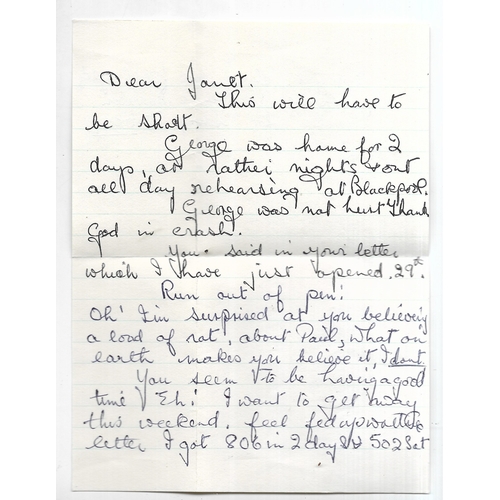 Dear Janet.
This will have to
be short.
George was home for 2
days, or rather nights & out
all day rehearsing at Blackpool.
George was not hurt Thank
God in crash.
You said in your letter
which I have just opened. 29th.
Run out of pen!
Oh! I'm surprised at you believing
a load of rot, about Paul, What on
earth makes you believe it, I dont
You seem to be having a good
time Eh! I want to get away
this weekend, feel fed up
letter I got 806 in 2 days 502 Sat